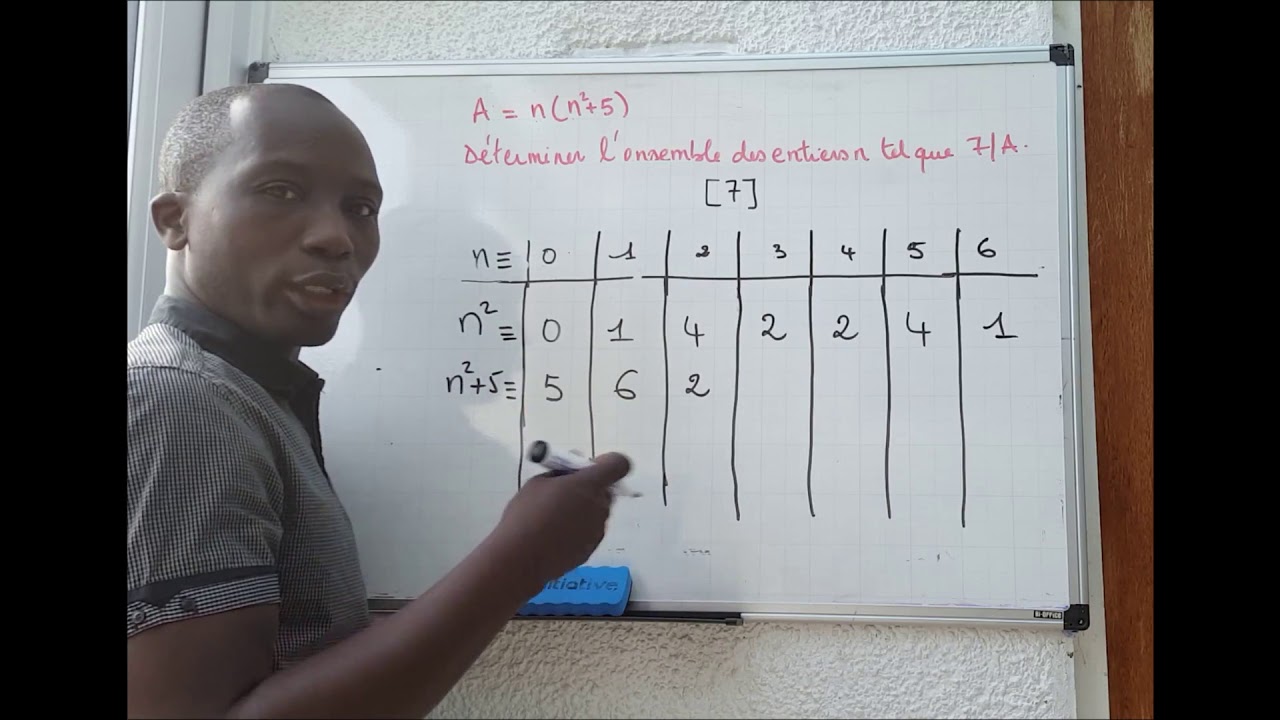 A = n(n²+5)
Déterminer l'ensemble des entiers n tel que 7/A.
[7]
n ≡ 0 1 2 3 4 5 6
n² ≡ 0 1 4 2 2 4 1
n²+5 ≡ 5 6 2
itiative
BI-OFFICE